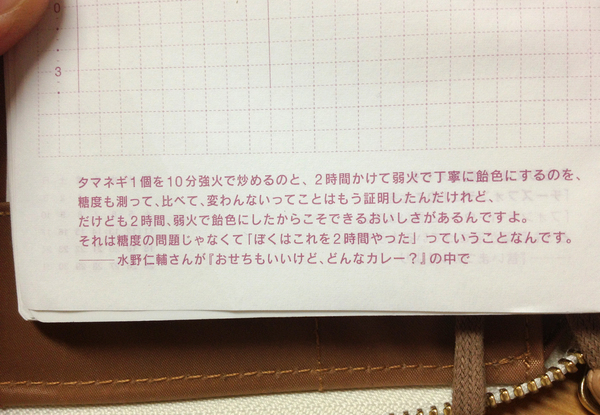 0
3
タマネギ1個を10分強火で炒めるのと、2時間かけて弱火で丁寧に飴色にするのを、
糖度も測って、比べて、変わんないってことはもう証明したんだけれど、
だけども2時間、弱火で飴色にしたからこそできるおいしさがあるんですよ。
それは糖度の問題じゃなくて「ぼくはこれを2時間やった」っていうことなんです。
――水野仁輔さんが『おせちもいいけど、どんなカレー?』の中で